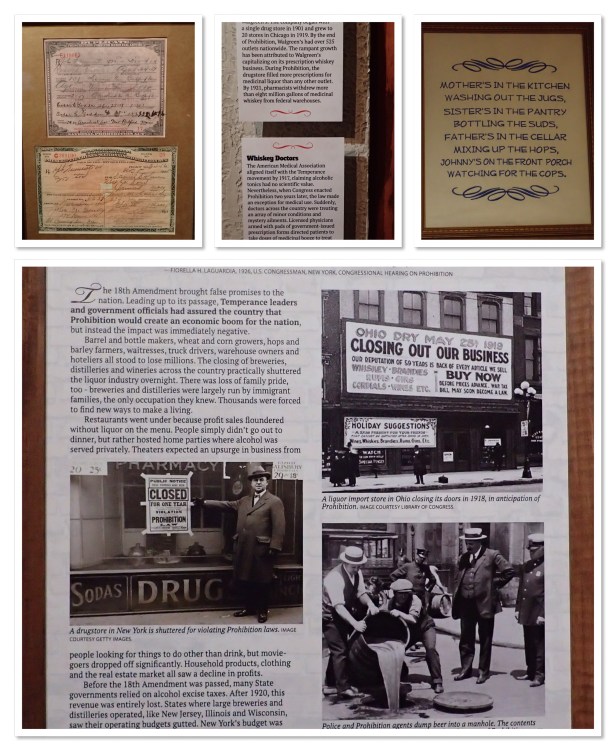 a single drug store in 1901 and grew to
20 stores in Chicago in 1919. By the end
of Prohibition, Walgreen's had over 525
outlets nationwide. The rampant growth
has been attributed to Walgreen's
capitalizing on its prescription whiskey
business. During Prohibition, the
drugstore filled more prescriptions for
medicinal liquor than any other outlet.
By 1921, pharmacists withdrew more
than eight million gallons of medicinal
whiskey from federal warehouses.
Whiskey Doctors
The American Medical Association
aligned itself with the Temperance
movement by 1917, claiming alcoholic
tonics had no scientific value.
Nevertheless, when Congress enacted
Prohibition two years later, the law made
an exception for medical use. Suddenly,
doctors across the country were treating
an array of minor conditions and
mystery ailments. Licensed physicians
armed with pads of government-issued
prescription forms directed patients to
take doses of medicinal booze to treat
MOTHER'S IN THE KITCHEN
WASHING OUT THE JUGS,
SISTER'S IN THE PANTRY
BOTTLING THE SUDS,
FATHER'S IN THE CELLAR
MIXING UP THE HOPS,
JOHNNY'S ON THE FRONT PORCH
WATCHING FOR THE COPS.
—FIORELLA H. LAGUARDIA, 1926, U.S. CONGRESSMAN, NEW YORK, CONGRESSIONAL HEARING ON PROHIBITION
The 18th Amendment brought false promises to the
nation. Leading up to its passage, Temperance leaders
and government officials had assured the country that
Prohibition would create an economic boom for the nation,
but instead the impact was immediately negative.
Barrel and bottle makers, wheat and corn growers, hops and
barley farmers, waitresses, truck drivers, warehouse owners and
hoteliers all stood to lose millions. The closing of breweries,
distilleries and wineries across the country practically shuttered
the liquor industry overnight. There was loss of family pride,
too - breweries and distilleries were largely run by immigrant
families, the only occupation they knew. Thousands were forced
to find new ways to make a living.
Restaurants went under because profit sales floundered
without liquor on the menu. People simply didn't go out to
dinner, but rather hosted home parties where alcohol was
served privately. Theaters expected an upsurge in business from
PHARMACY
PUBLIC NOTICE
CLOSED
FOR ONE YEAR
VIOLATION
PROHIBITION
LAW
SODAS DRUG
A drugstore in New York is shuttered for violating Prohibition laws. IMAGE
COURTESY GETTY IMAGES.
people looking for things to do other than drink, but movie-
goers dropped off significantly. Household products, clothing
and the real estate market all saw a decline in profits.
Before the 18th Amendment was passed, many State
governments relied on alcohol excise taxes. After 1920, this
revenue was entirely lost. States where large breweries and
distilleries operated, like New Jersey, Illinois and Wisconsin,
saw their operating budgets gutted. New York's budget was
OHIO DRY MAY 28th 1919
CLOSING OUT OUR BUSINESS
OUR REPUTATION OF 50 YEARS IS BACK OF EVERY ARTICLE WE SELL
WHISKEY-BRANDIES
RUMS-GINS
CORDIALS-WINES ETC.
BUY NOW
BEFORE PRICES ADVANCE. WAR TAX
BILL MAY SOON BECOME A LAW.
HOLIDAY SUGGESTIONS
A liquor import store in Ohio closing its doors in 1918, in anticipation of
Prohibition. IMAGE COURTESY LIBRARY OF CONGRESS.
Police and Prohibition agents dump beer into a manhole. The contents